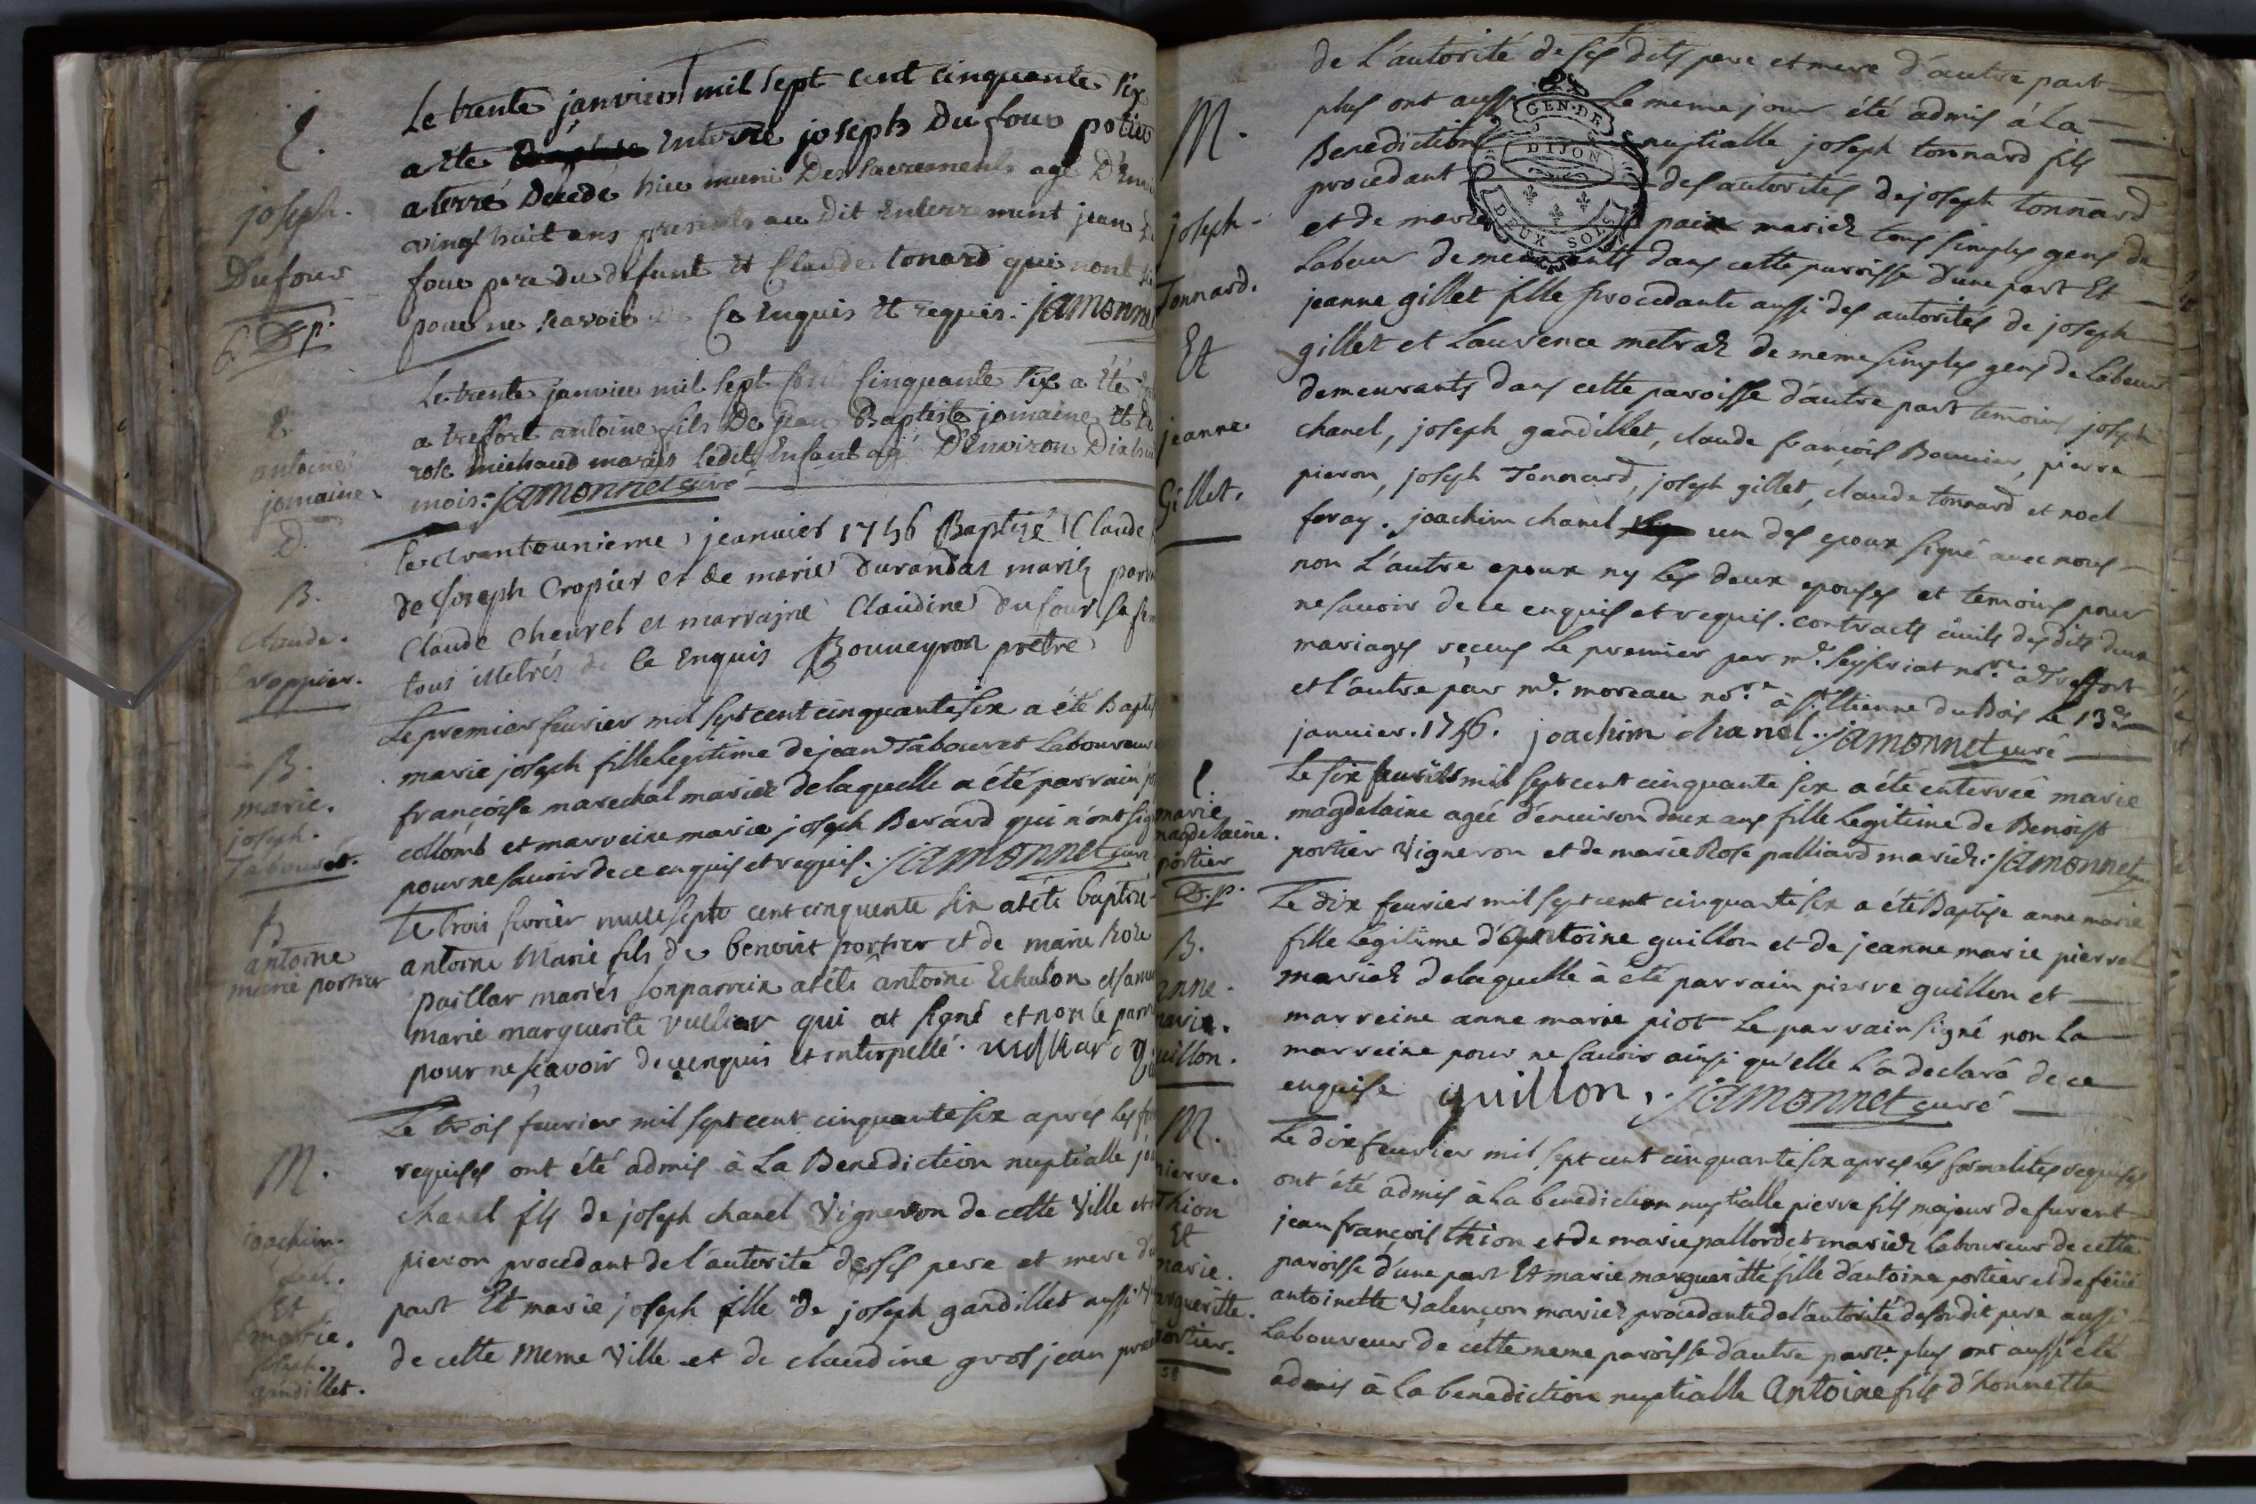 E.
joseph.
Dufour
D.p.
Le trente janvier mil sept cent cinquante six
a eté enterré joseph Dufour potier
a terre Décedé hier muni Des sacrements agé D'envi
vingt huit ans presents au Dit Enterrement jean Du
four pere du defunt et Claude tonard qui n'ont
pour ne scavoir de ce Enquis et requis. jamonnet
E.
antoine
jomaine.
D.
Le trente janvier mil sept cent cinquante six a été
a treffort antoine fils De jean Baptiste jomaine et de
rose michaud mariés ledit Enfant agé D'Environ Dixhuit
mois. jamonnet curé
B.
Claude.
Croppier.
Le trantounieme jeanvier 1756 Baptizé Claude
de Joseph Cropier et de marie Durandat mariez
Claude Chevrel et marraine Claudine Dufour
tous illetrés de ce Enquis Bouveyron pretre
B.
marie.
joseph.
Tabouret.
Le premier fevrier mil sept cent cinquante six a été Bapti
marie joseph fille legitime de jean Tabouret laboureur
françoise marechal mariez de laquelle a été parrain
collomb et marreine marie joseph Berard qui n'ont sig
pour ne savoir de ce enquis et requis. jamonnet curé
B
antoine
marie portier
Le trois fevrier mille sept cent cinquente six a été baptisé
antoine Marie fils de benoit portier et de marie Rose
paillar mariés son parrein a été antoine Echalon et sa mar
marie marguerite vulliar qui at signé et non le parr
pour ne sçavoir de ce enquis et interpellé. vulliard
M.
joachim.
chanel.
Et
marie.
joseph.
gandillet.
Le trois fevrier mil sept cent cinquante six aprés les for
requises ont été admis à la Benediction nuptialle jo
chanel fils de joseph chanel Vigneron de cette Ville et
pieron procedant de l'autorité de ses pere et mere d'u
part Et marie joseph fille de joseph gandillet aussi
de cette meme Ville et de claudine grosjean pro
de l'autorité de ses dits pere et mere d'autre part
M.
joseph
Tonnard.
Et
jeanne
Gillet.
GEN. DE DIJON
DEUX SOLS
plus ont aussi Le meme jour été admis à la
Benediction nuptialle joseph tonnard fils
procedant des autorités de joseph tonnard
et de marie paix mariez tous simples gens de
labeur demeurants dans cette paroisse d'une part Et
jeanne gillet fille procedante aussi des autorités de joseph
gillet et Laurence metraz de meme simples gens de labeur
demeurants dans cette paroisse d'autre part temoins joseph
chanel, joseph gandillet, claude françois Bouvier, pierre
pieron, joseph Tonnard, joseph gillet, claude tonnard et noel
feray. joachim chanel un des epoux signé avec nous
non l'autre epoux ny les deux epouses et temoins pour
ne savoir de ce enquis et requis. contracts civils des dits deux
mariages reçeus le premier par mr. seyssriat nore. a Treffort
et l'autre par mr. moreau nore. à St. Etienne du Bois le 13e
janvier. 1756. joachim chanel. jamonnet curé
E.
marie
magdelaine.
portier
D.p.
Le six fevrier mil sept cent cinquante six a été enterrée marie
magdelaine agée d'environ deux ans fille legitime de Benoist
portier Vigneron et de marie Rose palliard mariez. jamonnet
B.
anne.
marie.
uillon.
Le dix fevrier mil sept cent cinquante six a été Baptisé anne marie
fille legitime d'antoine guillon et de jeanne marie pierrel
mariez de laquelle à été parrain pierre guillon et
marreine anne marie piot le parrain signé non la
marreine pour ne savoir ainsi qu'elle l'a declaré de ce
enquise guillon. jamonnet curé
M.
pierre.
Thion
Et
marie.
argueritte.
portier.
58
Le dix fevrier mil sept cent cinquante six aprés les formalités requises
ont été admis à la benediction nuptialle pierre fils majeur de furent
jean françois thion et de marie pallordet mariez laboureur de cette
paroisse d'une part Et marie margueritte fille d'antoine portier et de feüe
antoinette Valençon mariez procedante de l'autorité de son dit pere aussi
Laboureur de cette meme paroisse d'autre part. plus ont aussi été
admis à la benediction nuptialle Antoine fils d'honnette